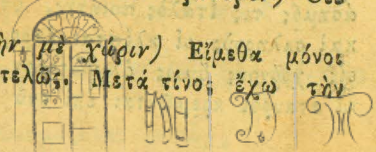 ὴν μὲ χώριν) Εἴμεθα μόνοι
τελῶς. Μετά τίνος ἔχω τὴν